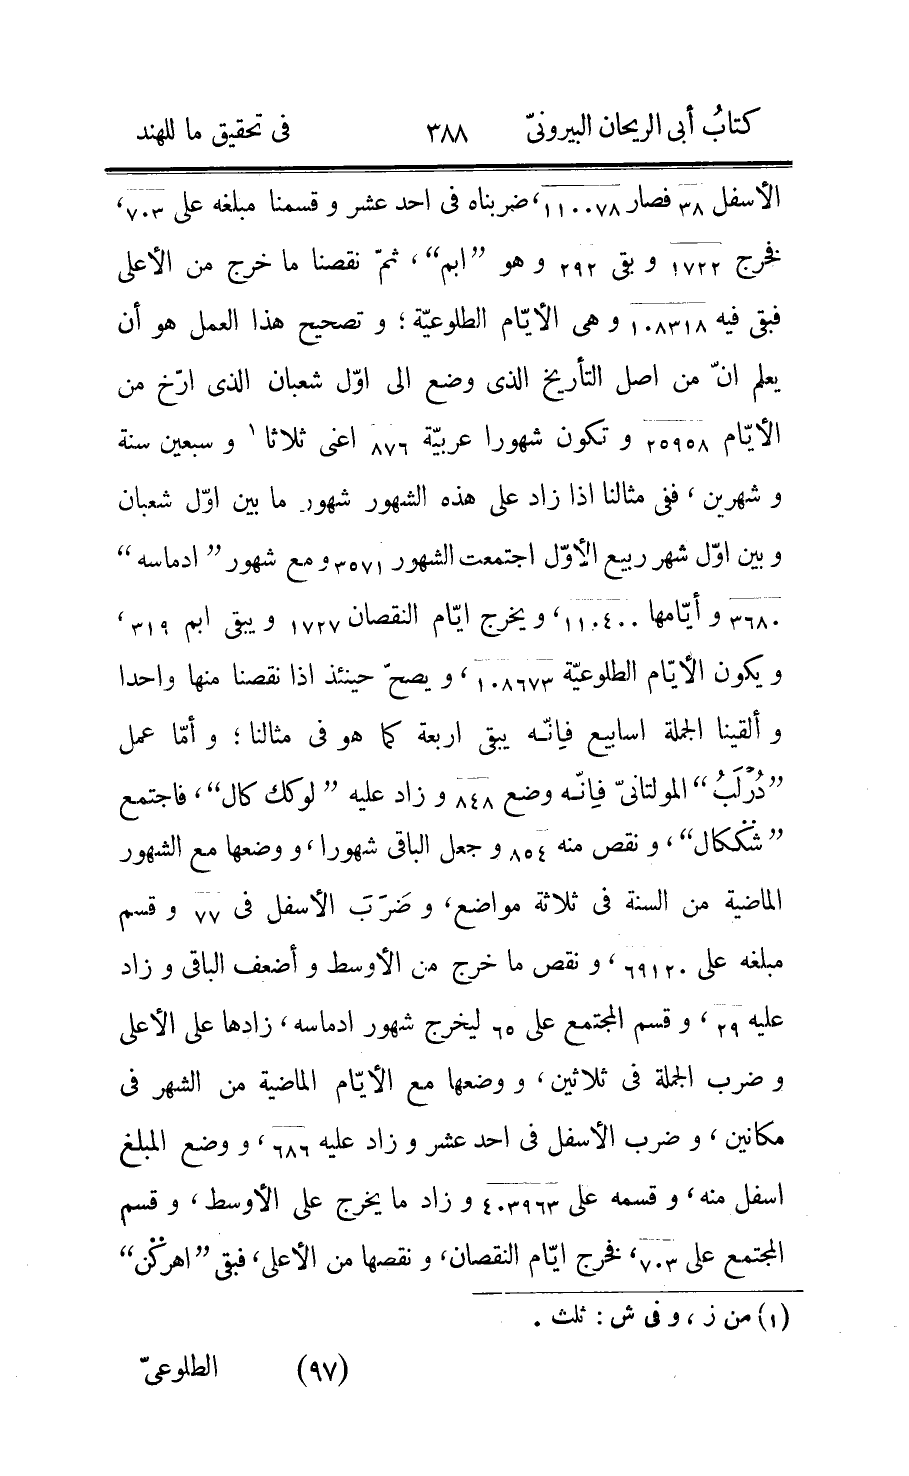 كتابُ أبى الريحان البيرونىّ ٣٨٨ فى تحقيق ما للهند
الأسفل ٣٨ فصار ١١٠٠٧٨، ضربناه فى احد عشر و قسمنا مبلغه على ٧٠٣،
فخرج ١٧٢٢ و بقى ٢٩٢ و هو ”ابم“، ثمّ نقصنا ما خرج من الأعلى
فبقى فيه ١٠٨٣١٨ و هى الأيّام الطلوعيّة؛ و تصحيح هذا العمل هو أن
يعلم انّ من اصل التأريخ الذى وضع الى اوّل شعبان الذى ارّخ من
الأيّام ٢٥٩٥٨ و تكون شهورا عربيّة ٨٧٦ اعنى ثلاثا ١ و سبعين سنة
و شهرين، ففى مثالنا اذا زاد على هذه الشهور شهور ما بين اوّل شعبان
و بين اوّل شهر ربيع الأوّل اجتمعت الشهور ٣٥٧١ و مع شهور ”ادماسه“
٣٦٨٠ و أيّامها ١١٠٤٠٠، و يخرج ايّام النقصان ١٧٢٧ و يبقى ابم ٣١٩،
و يكون الأيّام الطلوعيّة ١٠٨٦٧٣، و يصحّ حينئذ اذا نقصنا منها واحدا
و ألقينا الجملة اسابيع فانّه يبقى اربعة كما هو فى مثالنا؛ و أمّا عمل
”دُرْلَبُ“ المولتانىّ فانّه وضع ٨٤٨ و زاد عليه ”لوكك كال“، فاجتمع
”شككال“، و نقص منه ٨٥٤ و جعل الباقى شهورا، و وضعها مع الشهور
الماضية من السنة فى ثلاثة مواضع، و ضَرَبَ الأسفل فى ٧٧ و قسم
مبلغه على ٦٩١٢٠، و نقص ما خرج من الأوسط و أضعف الباقى و زاد
عليه ٢٩، و قسم المجتمع على ٦٥ ليخرج شهور ادماسه، زادها على الأعلى
و ضرب الجملة فى ثلاثين، و وضعها مع الأيّام الماضية من الشهر فى
مكانين، و ضرب الأسفل فى احد عشر و زاد عليه ٦٨٦، و وضع المبلغ
اسفل منه، و قسمه على ٤٠٣٩٦٣ و زاد ما يخرج على الأوسط، و قسم
المجتمع على ٧٠٣، فخرج ايّام النقصان، و نقصها من الأعلى، فبقى ”اهركن“
(١) من ز، و فى ش: ثلث.
(٩٧) الطلوعىّ